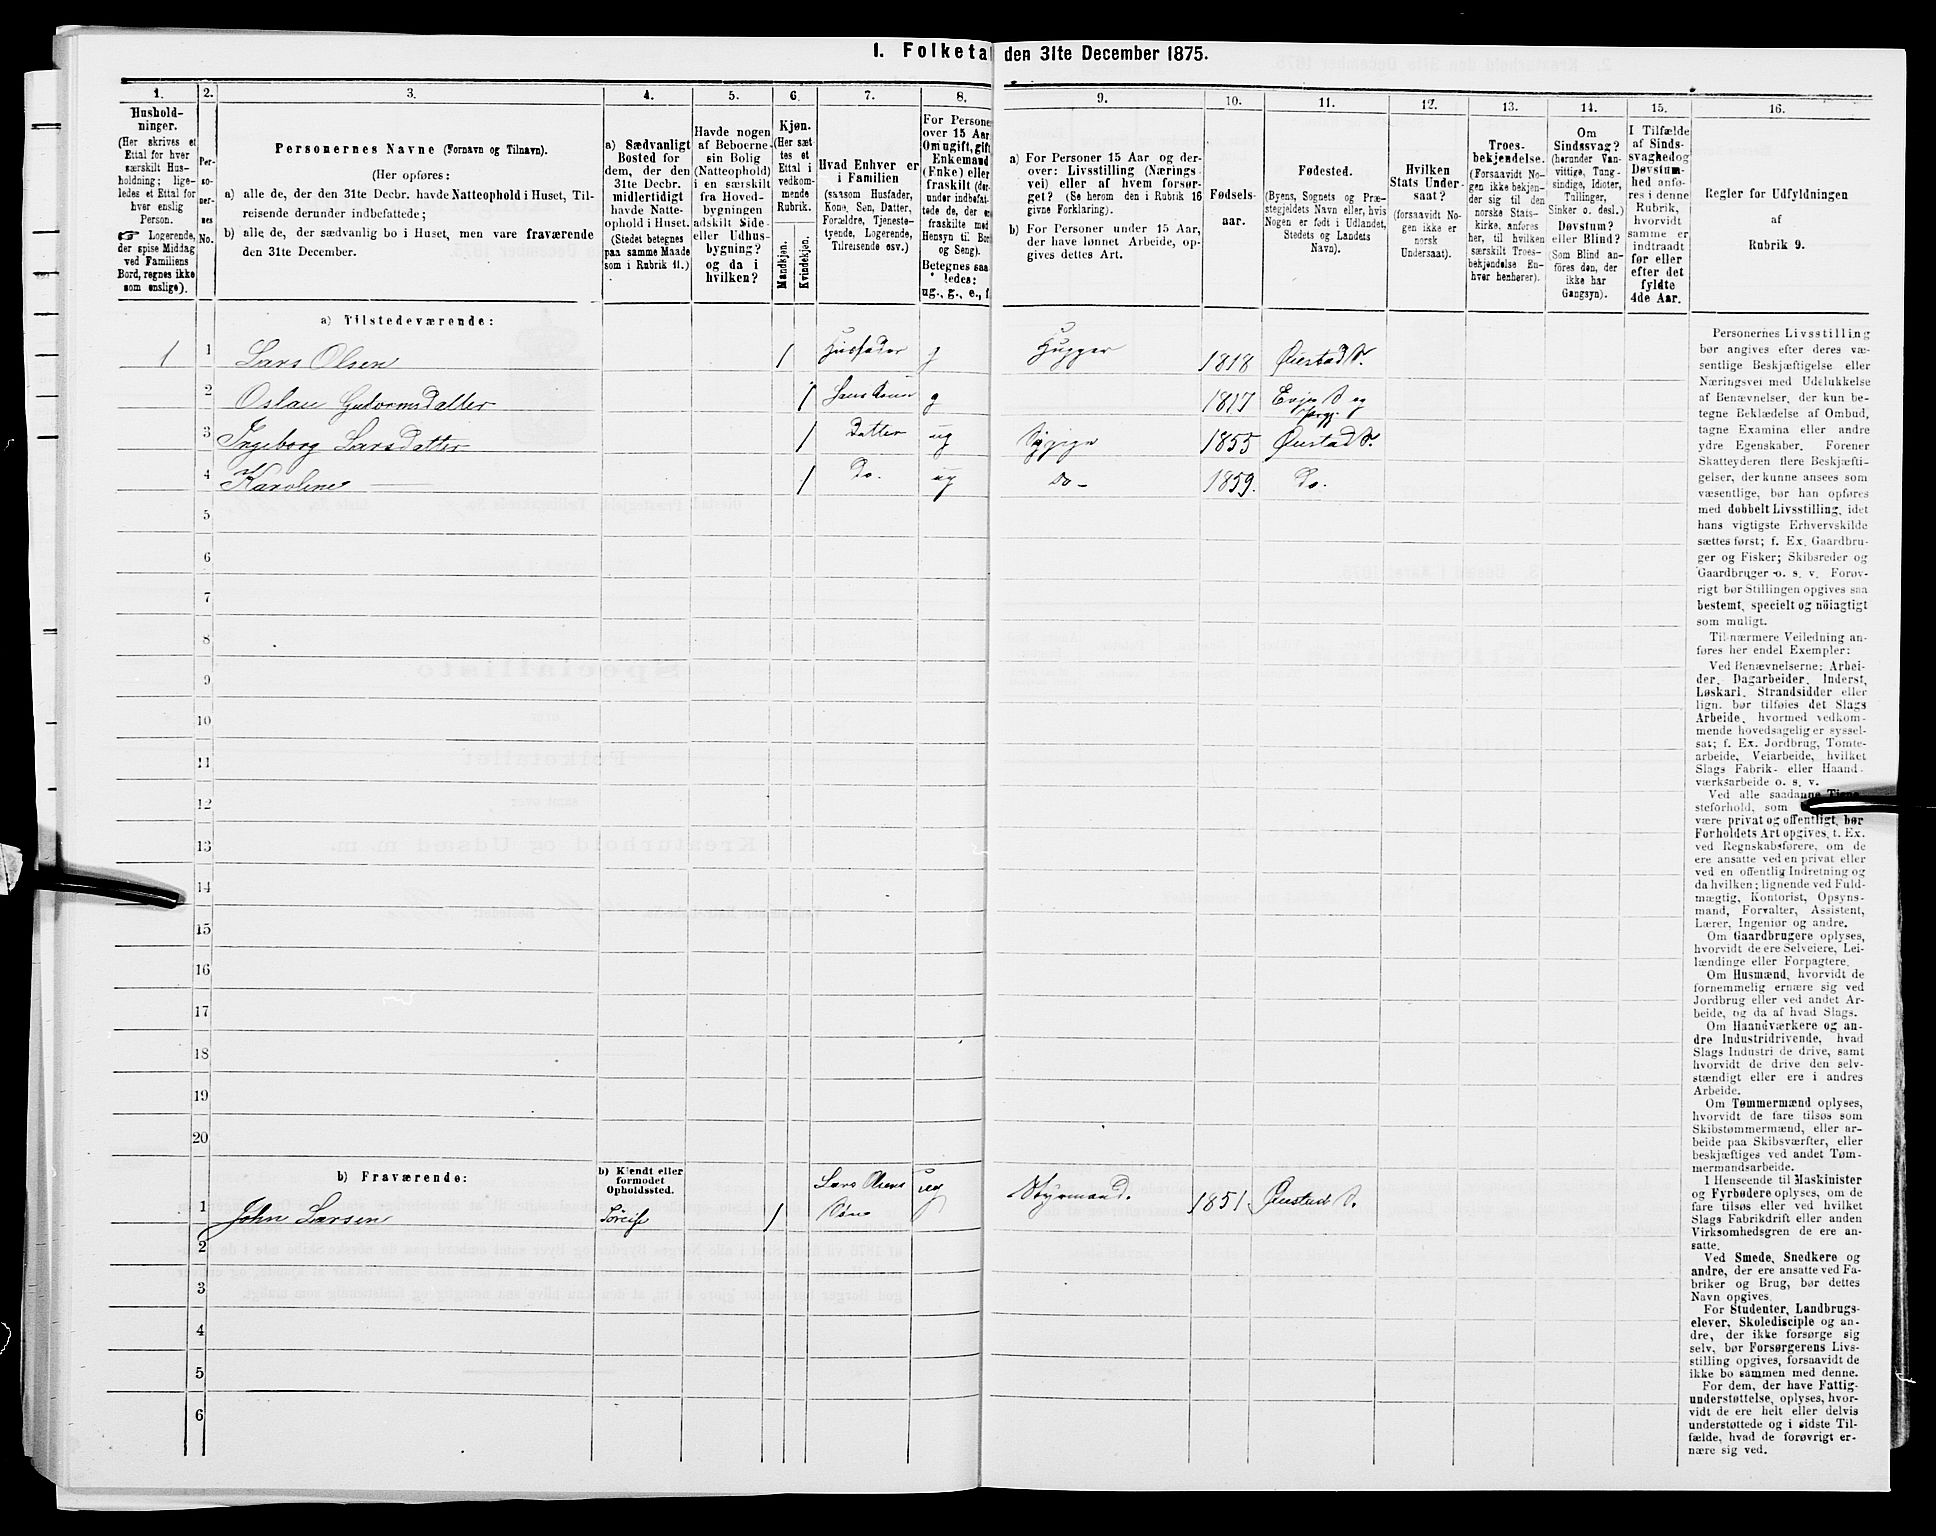 I. Folketal den 31te December 1875.
1. 2. 3. 4. 5. 6. 7. 8. 9. 10. 11. 12. 13. 14. 15. 16.
Hushold-
ninger.
(Her skrives et
Ettal for hver
særskilt Hus-
holdning; lige-
ledes et Ettal for
hver enslig
Person.
☞ Logerende,
der spise Middag
ved Familiens
Bord, regnes ikke
som enslige).
Per-
so-
ner-
nes
No.
Personernes Navne (Fornavn og Tilnavn).
(Her opføres:
a) alle de, der den 31te Decbr. havde Natteophold i Huset, Til-
reisende derunder indbefattede;
b) alle de, der sædvanlig bo i Huset, men vare fraværende
den 31te December.
a) Sædvanligt
Bosted for
dem, der den
31te Decbr.
midlertidigt
havde Natte-
ophold i Huset.
(Stedet betegnes
paa samme Maade
som i Rubrik 11.)
Havde nogen
af Beboerne
sin Bolig
(Natteophold)
i en særskilt
fra Hoved-
bygningen
adskilt Side-
eller Udhus-
bygning?
og da i
hvilken?
Kjøn.
(Her sæt-
tes et
Ettal i
vedkom-
mende
Rubrik.
Mandkjøn.
Kvindekjøn.
Hvad Enhver er
i Familien
(saasom Husfader,
Kone, Søn, Datter,
Forældre, Tjeneste-
tyende, Logerende,
Tilreisende osv.)
For Personer
over 15 Aar:
Om ugift, gift,
Enkemand
(Enke) eller
fraskilt (der-
under indbefat-
tede de, der er
fraskilte med
Hensyn til Bord
og Seng).
Betegnes saa-
ledes:
ug., g., e., f.
a) For Personer 15 Aar og der-
over: Livsstilling (Nærings-
vei) eller af hvem forsør-
get? (Se herom den i Rubrik 16
givne Forklaring).
b) For Personer under 15 Aar,
der have lønnet Arbeide, op-
gives dettes Art.
Fødsels-
aar.
Fødested.
(Byens, Sognets og Præ-
stegjeldets Navn eller, hvis
Nogen er født i Udlandet,
Stedets og Landets
Navn).
Hvilken
Stats Under-
saat?
(forsaavidt No-
gen ikke er
norsk
Undersaat).
Troes-
bekjendelse.
(Forsaavidt No-
gen ikke bekjen-
der sig til den
norske Stats-
kirke, anføres
her, til hvilken
særskilt Troes-
bekjendelse En-
hver henhører).
Om
Sindssvag?
(herunder Van-
vittige, Tung-
sindige, Idioter,
Tullinger,
Sinker o. desl.)
Døvstum?
eller Blind?
(Som Blind an-
føres den, der
ikke har
Gangsyn).
I Tilfælde
af Sinds-
svaghed og
Døvstum-
hed anfø-
res i denne
Rubrik,
hvorvidt
samme er
indtraadt
før eller
efter det
fyldte
4de Aar.
Regler for Udfyldningen
af
Rubrik 9.
a) Tilstedeværende:
1 1 Lars Olsen 1 Husfader g Hugger 1818 Øiestad S.
2 Oslau Gutormsdatter 1 g 1817 Evje S og
3 Ingeborg Larsdatter 1 Datter ug 1855 Øiestad S.
4 Karoline — 1 Do. ug Do - 1859. Do.
5
6
7
8
9
10
11
12
13
14
15
16
17
18
19
20
b) Fraværende:
b) Kjendt eller
formodet
Opholdssted.
1 John Larsen 1 Lars Olsens ug Styrmand. 1851. Øiestad S.
2
3
4
5
6
Personernes Livsstilling
bør angives efter deres væ-
sentlige Beskjæftigelse eller
Næringsvei med Udelukkelse
af Benævnelser, der kun be-
tegne Beklædelse af Ombud,
tagne Examina eller andre
ydre Egenskaber. Forener
Skatteyderen flere Beskjæfti-
gelser, der kunne ansees som
væsentlige, bør han opføres
med dobbelt Livsstilling, idet
hans vigtigste Erhvervskilde
sættes først; f. Ex. Gaardbru-
ger og Fisker; Skibsreder og
Gaardbruger o. s. v. Forøv-
rigt bør Stillingen opgives saa
bestemt, specielt og nöiagtigt
som muligt.
Til nærmere Veiledning an-
føres her endel Exempler:
Ved Benævnelserne: Arbei-
der, Dagarbeider, Inderst,
Løskarl, Strandsidder eller
lign. bør tilføies det Slags
Arbeide, hvormed vedkom-
mende hovedsagelig er syssel-
sat; f. Ex. Jordbrug, Tomte-
arbeide, Veiarbeide, hvilket
Slags Fabrik- eller Haand-
værksarbeide o. s. v.
Ved alle saadanne
steforhold, som
være privat og offentligt, bør
Forholdets Art opgives, t. Ex.
ved Regnskabsførere, om de
ere ansatte ved en privat eller
ved en offentlig Indretning og
da hvilken; lignende ved Fuld-
mægtig, Kontorist, Opsyns-
mand, Forvalter, Assistent,
Lærer, Ingeniør og andre.
Om Gaardbrugere oplyses,
hvorvidt de ere Selveiere, Lei-
lændinge eller Forpagtere.
Om Husmænd, hvorvidt de
fornemmelig ernære sig ved
Jordbrug eller ved andet Ar-
beide, og da af hvad Slags.
Om Haandværkere og an-
dre Industridrivende, hvad
Slags Industri de drive, samt
hvorvidt de drive den selv-
stændigt eller ere i andres
Arbeide.
Om Tømmermænd oplyses,
hvorvidt de fare tilsøs som
Skibstømmermænd, eller ar-
beide paa Skibsværfter, eller
beskjæftiges ved andet Tøm-
mermandsarbeide.
I Henseende til Maskinister
og Fyrbødere oplyses, om de
fare tilsøs eller ved hvilket
Slags Fabrikdrift eller anden
Virksomhedsgren de ere an-
satte.
Ved Smede, Snedkere og
andre, der ere ansatte ved Fa-
briker og Brug, bør dettes
Navn opgives.
For Studenter, Landbrugs-
elever, Skoledisciple og an-
dre, der ikke forsørge sig
selv, bør Forsørgerens Livs-
stilling opgives, forsaavidt de
ikke bo sammen med denne.
For dem, der have Fattig-
understøttelse, oplyses, hvor-
vidt de ere helt eller delvis
understøttede og i sidste Til-
fælde, hvad de forøvrigt er-
nære sig ved.